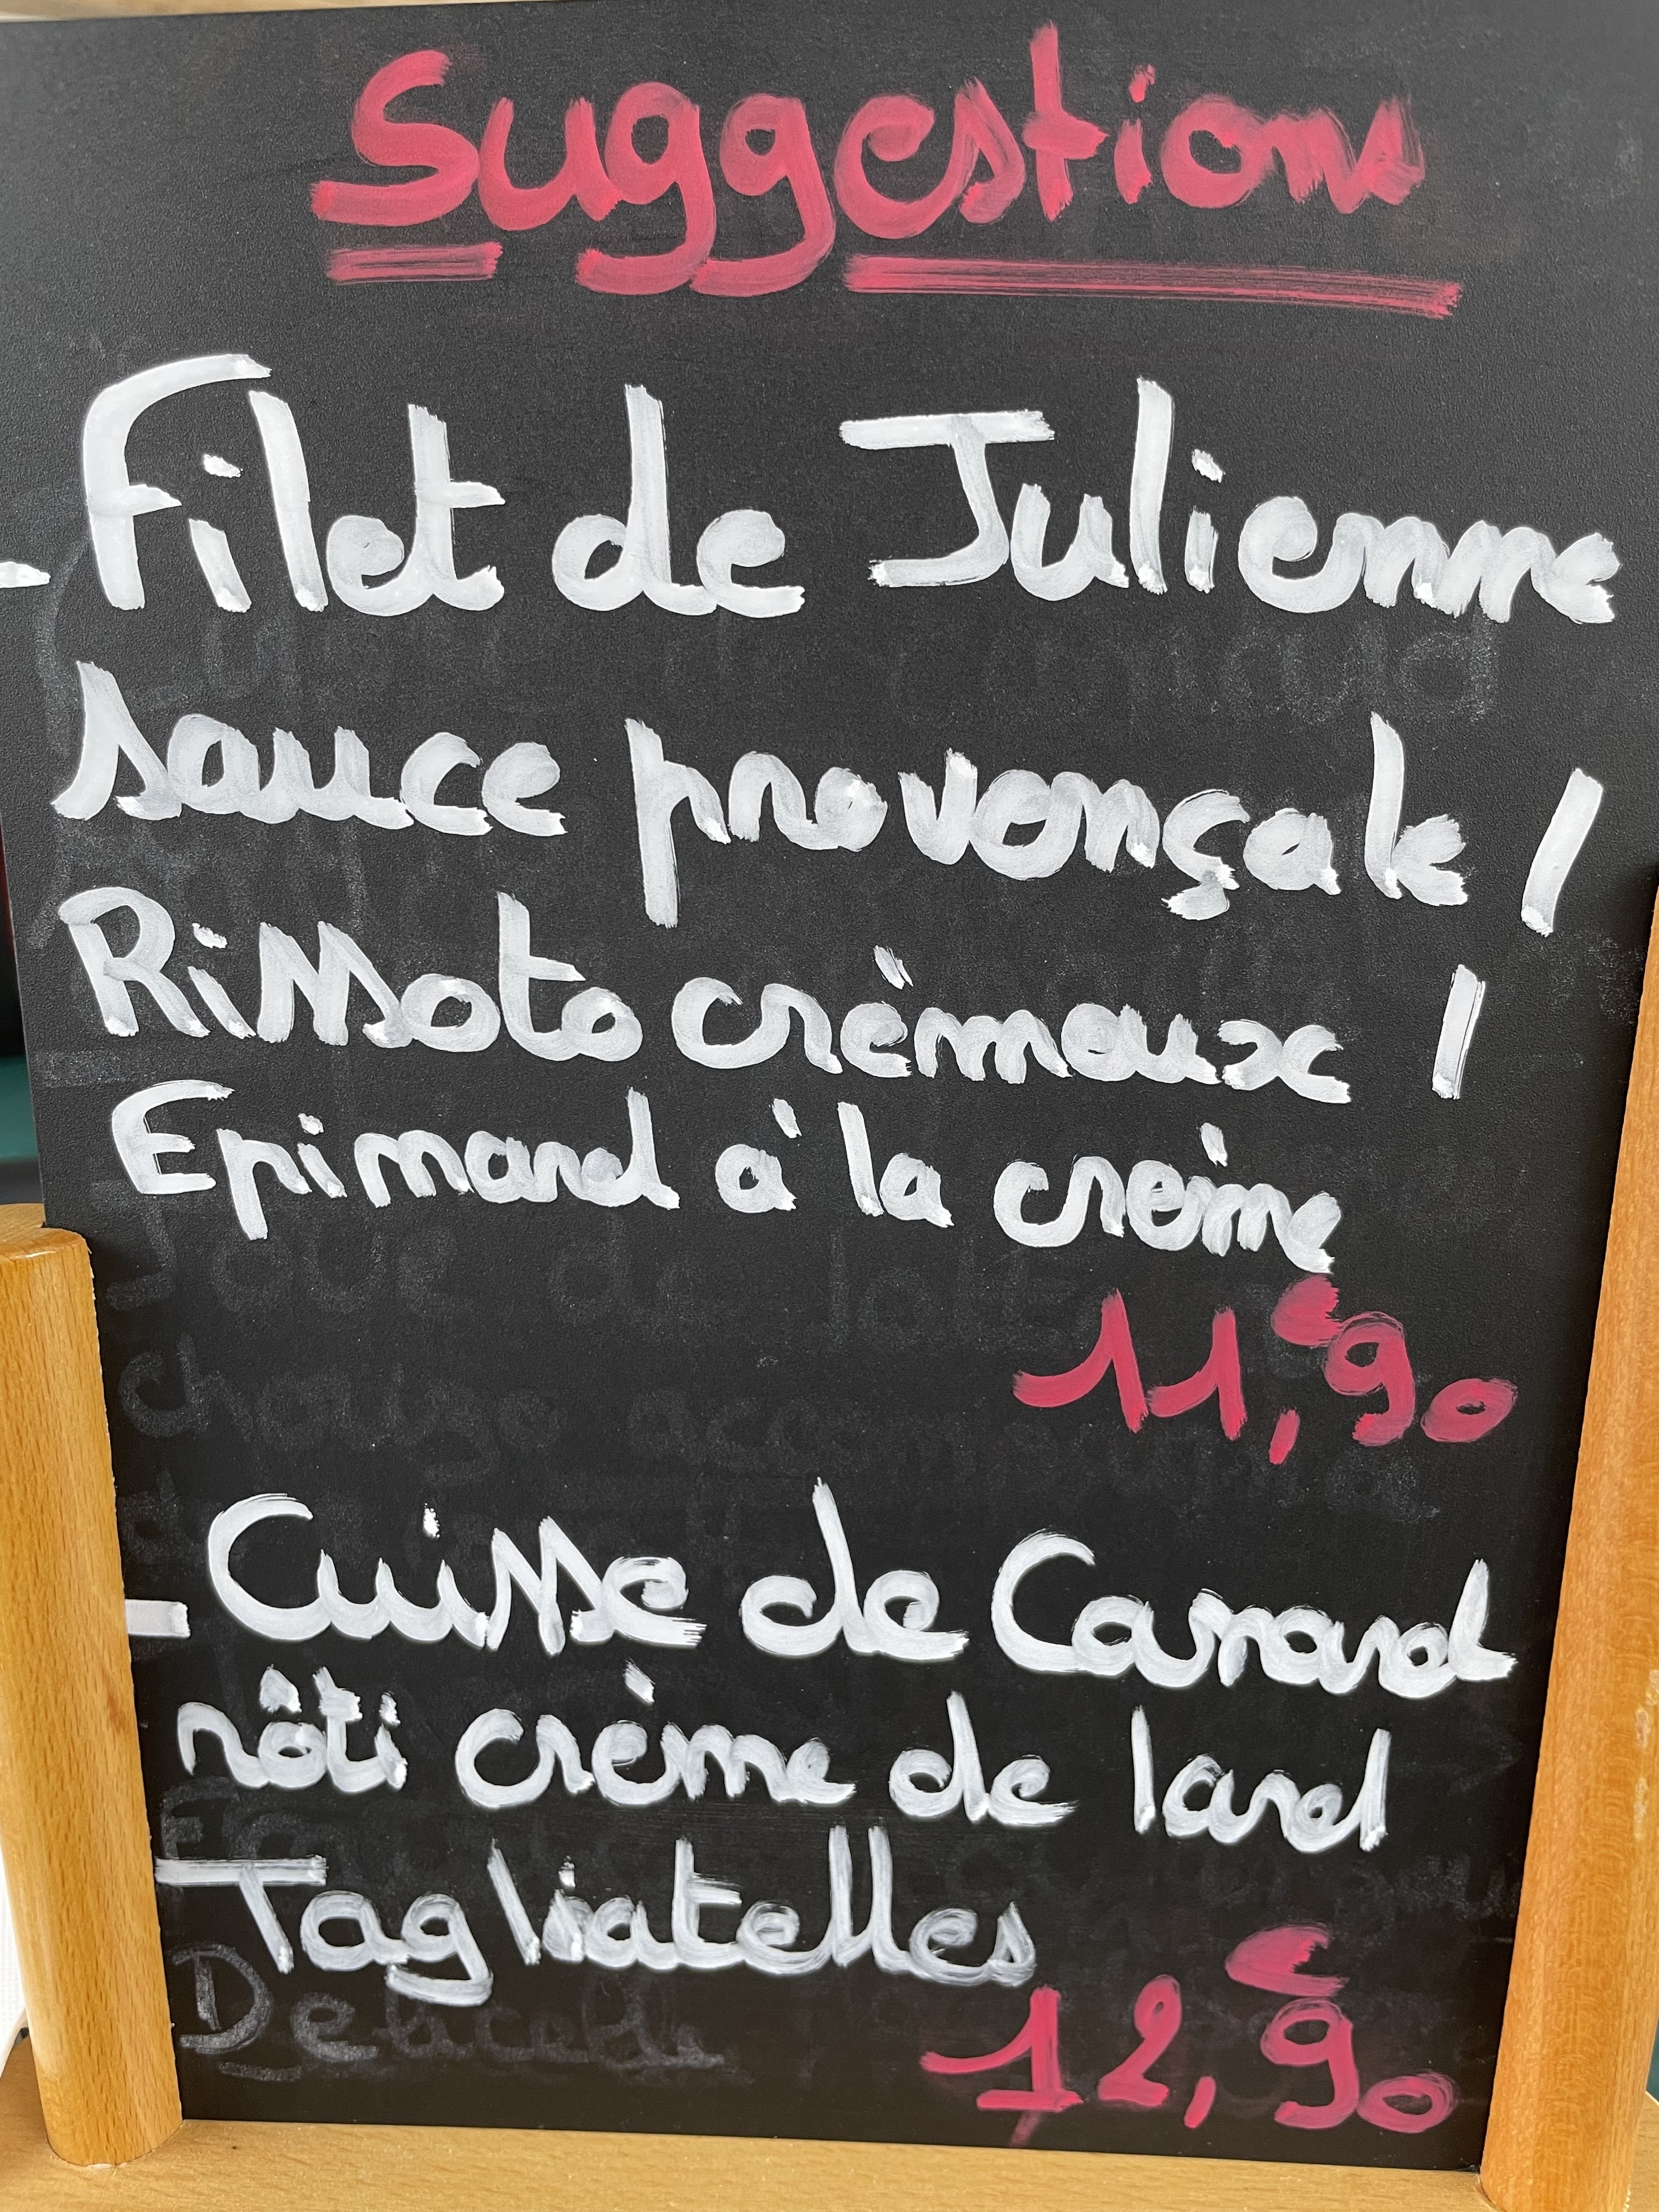 Suggestions
- Filet de Julienne
sauce provonçale /
Rissoto crèmeux /
Epinard à la crème
11,€90
- Cuisse de Canard
rôti crème de lard
Tagliatelles
12,€90